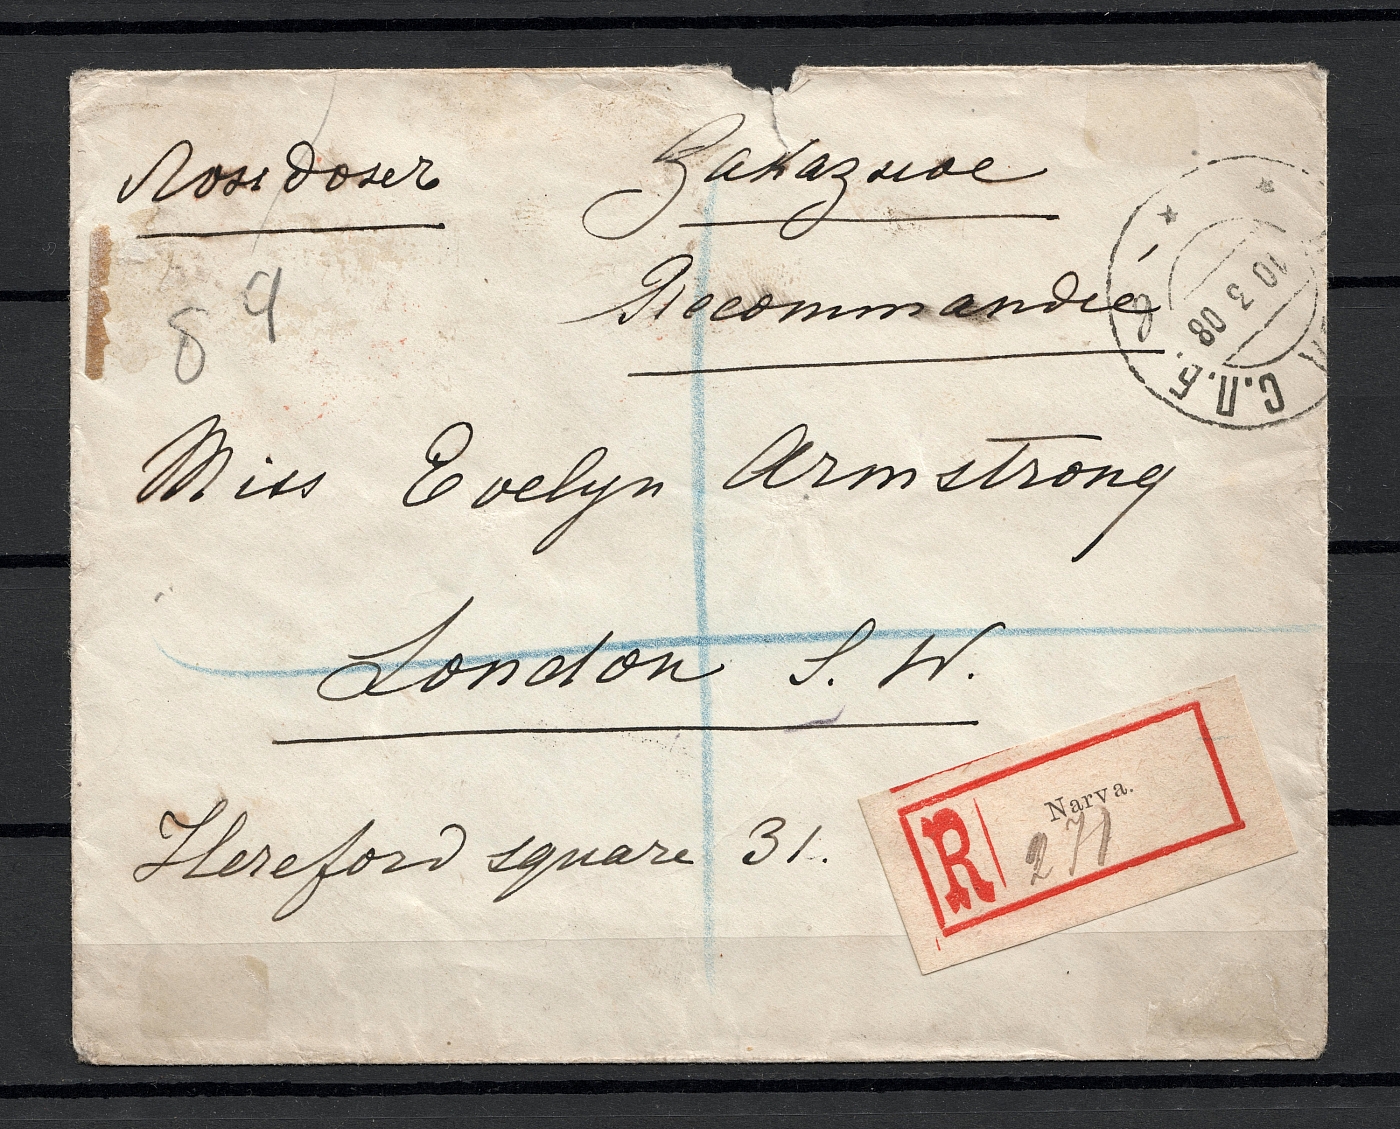 Лондонъ
Заказное
Recommandié
8 9
Miss Evelyn Armstrong
London S. W.
Hereford square 31.
С.П.Б.
10 3 08
R
Narva.
271